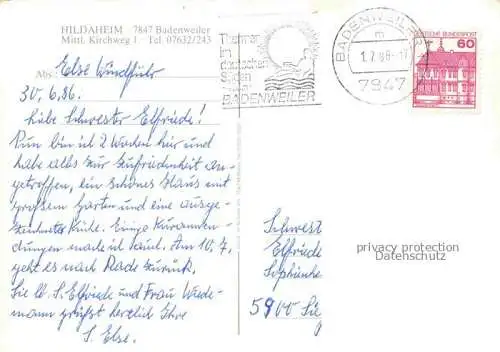 HILDAHEIM 7847 Badenweiler
Mittl. Kirchweg 1 Tel. 07632/243
Abs. Else Windfuhr
30.6.86.
Liebe Schwester Elfriede!
Nun bin ich 2 Wochen hier und
habe alles zur Zufriedenheit an-
getroffen, ein schönes Haus mit
großem Garten und eine ausge-
zeichnete Küche. Einige Kuranwen-
dungen mache ich auch. Am 10.7.
geht es nach Rade zurück.
Sie lb. S. Elfriede und Frau Wiede-
mann grüßt herzlich Ihre
S. Else.
Thermen
im
deutschen
Süden
BADENWEILER
BADENWEILER
m
7847
DEUTSCHE BUNDESPOST
60
Schwest
Elfriede
5900 Sie
privacy protection
Datenschutz